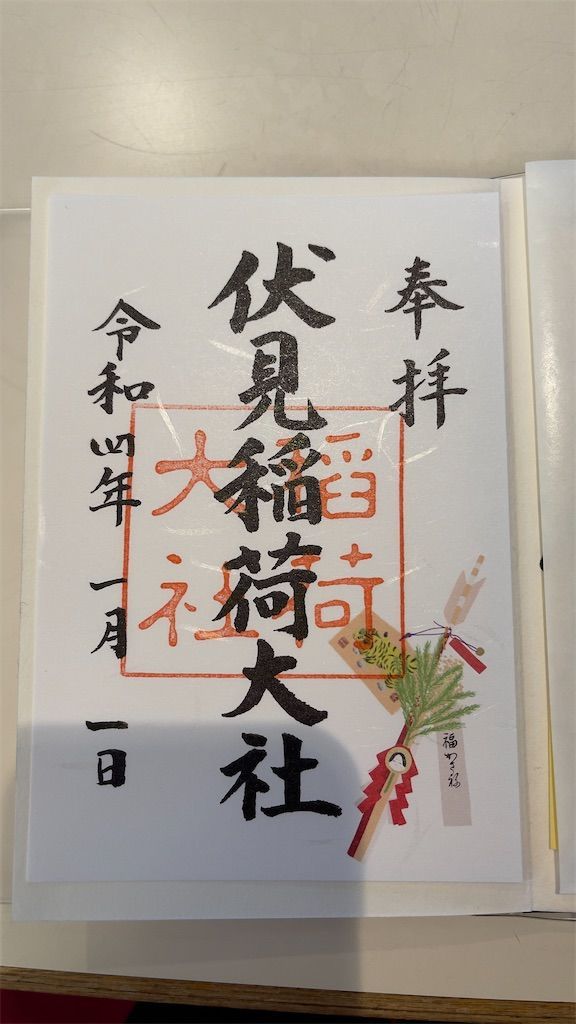 奉拝
伏見稲荷大社
稲荷
大社
令和四年 一月 一日
福かさ祢